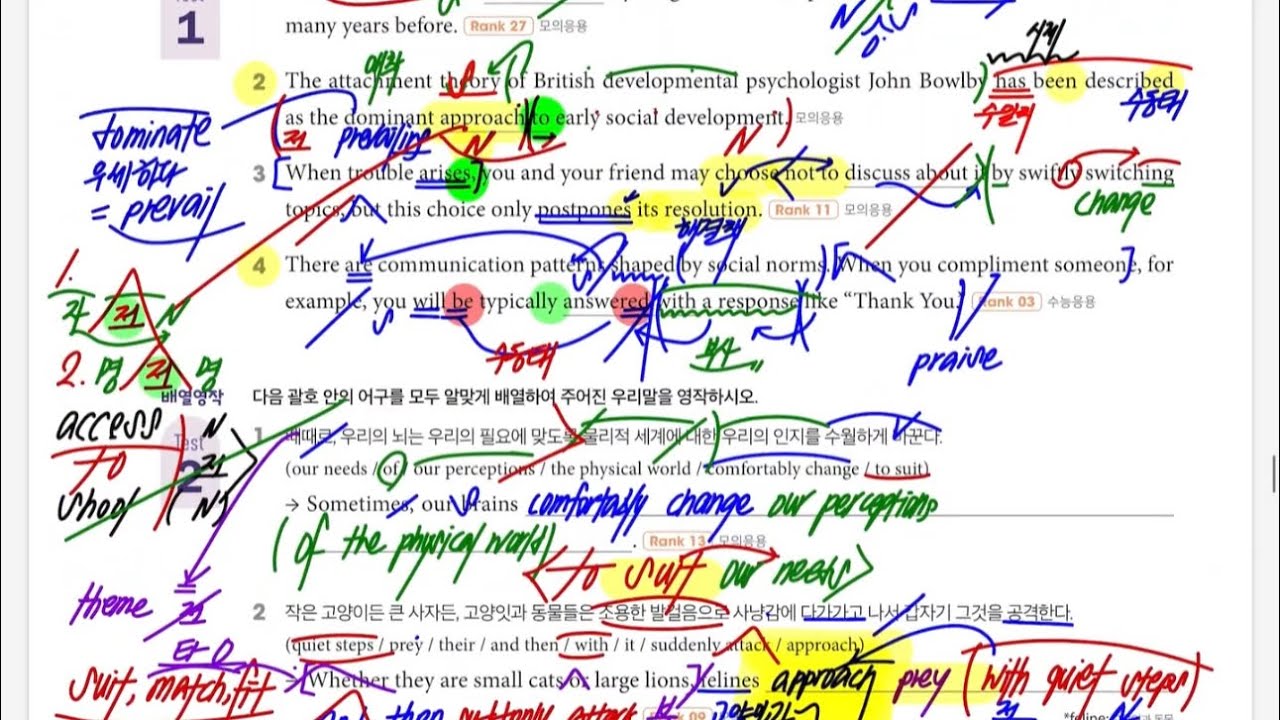 1
many years before. Rank 27 모의응용
시제
2 The attachment theory of British developmental psychologist John Bowlby has been described
수일치
수동태
as the dominant approach to early social development. 모의응용
dominate
우세하다
= prevail
전
prevailing
N
N
3 When trouble arises, you and your friend may choose not to discuss about it by swiftly switching
change
topics, but this choice only postpones its resolution. Rank 11 모의응용
해결책
4 There are communication patterns shaped by social norms. When you compliment someone, for
example, you will be typically answered with a response like “Thank You.” Rank 03 수능응용
수동태
부사
praise
1.
전 N
2. 명 전 명
배열영작 다음 괄호 안의 어구를 모두 알맞게 배열하여 주어진 우리말을 영작하시오.
access
to
school
N
전
(N)
Test
2
1 때때로, 우리의 뇌는 우리의 필요에 맞도록 물리적 세계에 대한 우리의 인지를 수월하게 바꾼다.
(our needs / of / our perceptions / the physical world / comfortably change / to suit)
→ Sometimes, our brains comfortably change our perceptions
(of the physical world) . Rank 13 모의응용
<to suit our needs>
theme 전
타 O
suit, match, fit
2 작은 고양이든 큰 사자든, 고양잇과 동물들은 조용한 발걸음으로 사냥감에 다가가고 나서 갑자기 그것을 공격한다.
(quiet steps / prey / their / and then / with / it / suddenly attack / approach)
→ Whether they are small cats or large lions, felines approach prey (with quiet steps)
전 N
then suddenly attack
Rank 09
*feline: